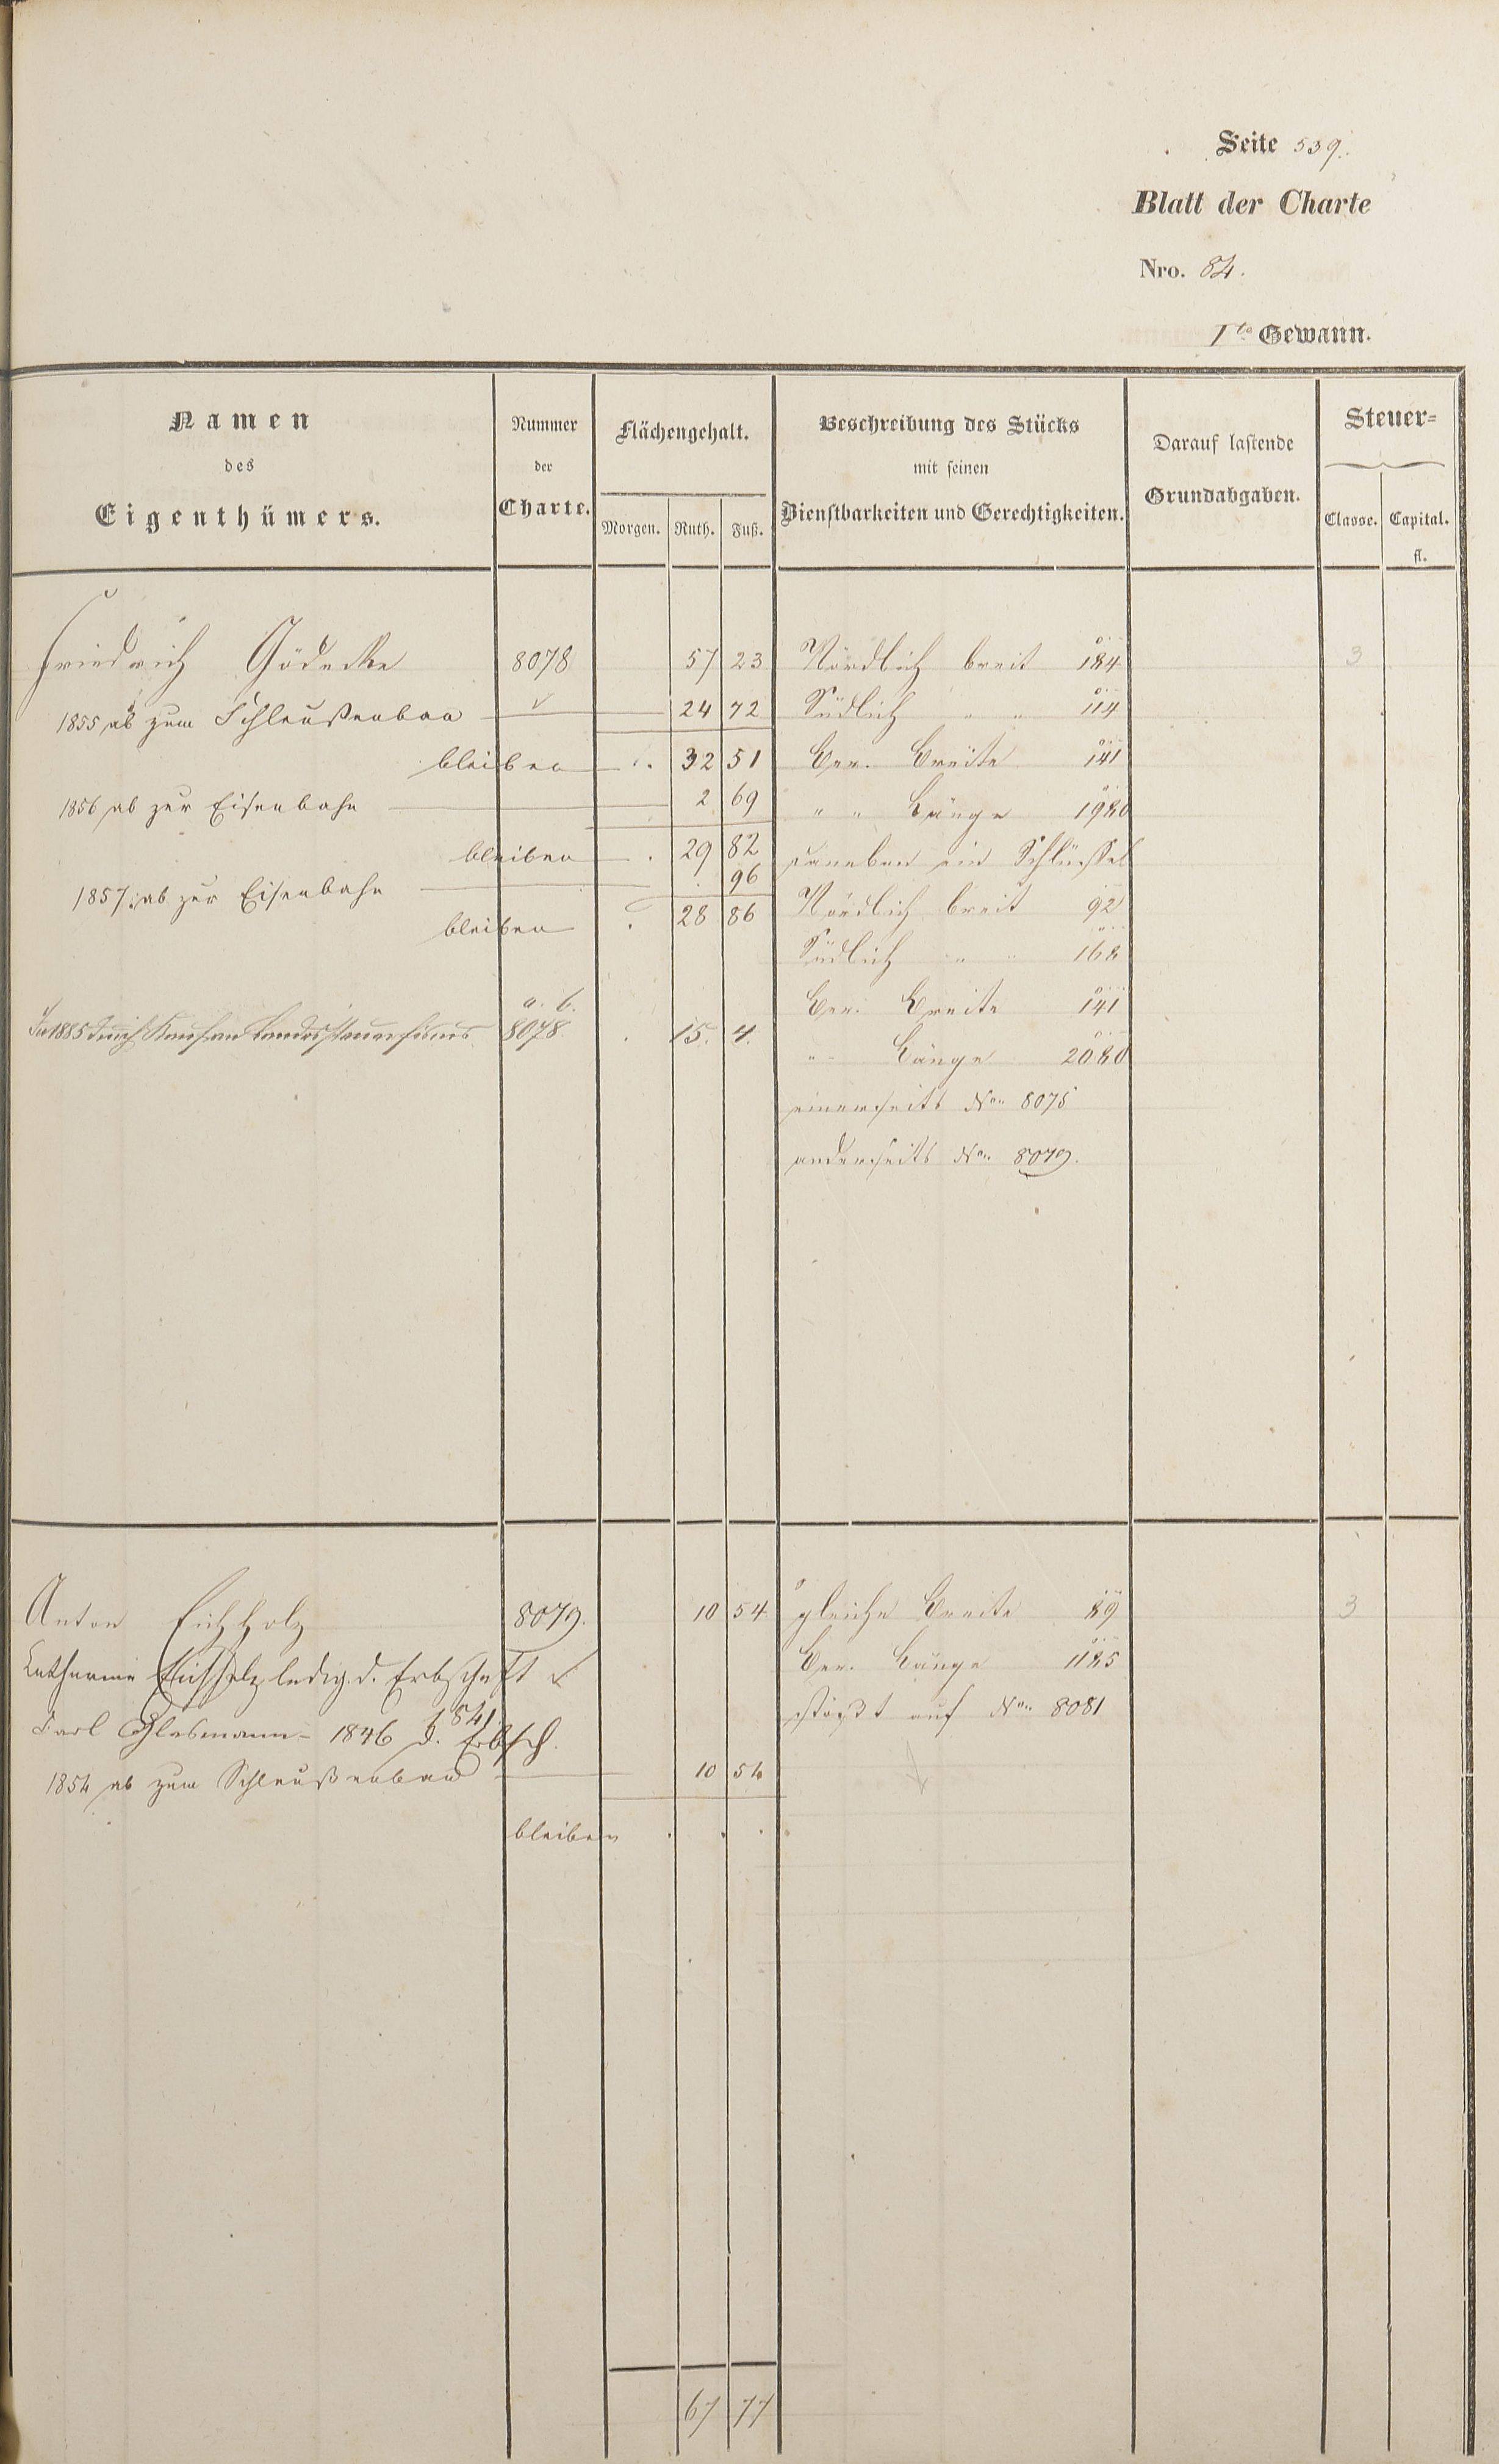 Seite 539.
Blatt der Charte
Nro. 84.
1te Gewann.
Namen
des
Eigenthümers.
Nummer
der
Charte.
Flächengehalt.
Morgen. Ruth. Fuß.
Beschreibung des Stücks
mit seinen
Dienstbarkeiten und Gerechtigkeiten.
Darauf lastende
Grundabgaben.
Steuer-
Classe. Capital.
fl.
Friedrich Gödecke 8078 57 23 Nördlich breit 184 3
1855 ab zum Schleußenbau 24 72 Südlich " " 114
bleiben 32 51 Ger. Breite 141
1856 ab zur Eisenbahn 2 69 " " Länge 1980
bleiben 29 82 daneben ein Schlüssel
1857 ab zur Eisenbahn 96
bleiben 28 86 Nördlich breit 92
Südlich " " 168
Ger. Breite 141
a. b.
In 1885 durch Kauf an Landessteuerfiskus 8078 15. 4.
" Länge 2080
einerseits Nro. 8075
anderseits Nro. 8079.
Anton Eichholz 8079. 10 54 gleiche Breite 89 3
Catharina Eichholz ledig d. Erbschaft Ger. Länge 1185
1841
Carl Glasmann - 1846 d. Erbsch. stößt auf Nro. 8081
1854 ab zum Schleußenbau 10 54
bleiben . . .
67 77